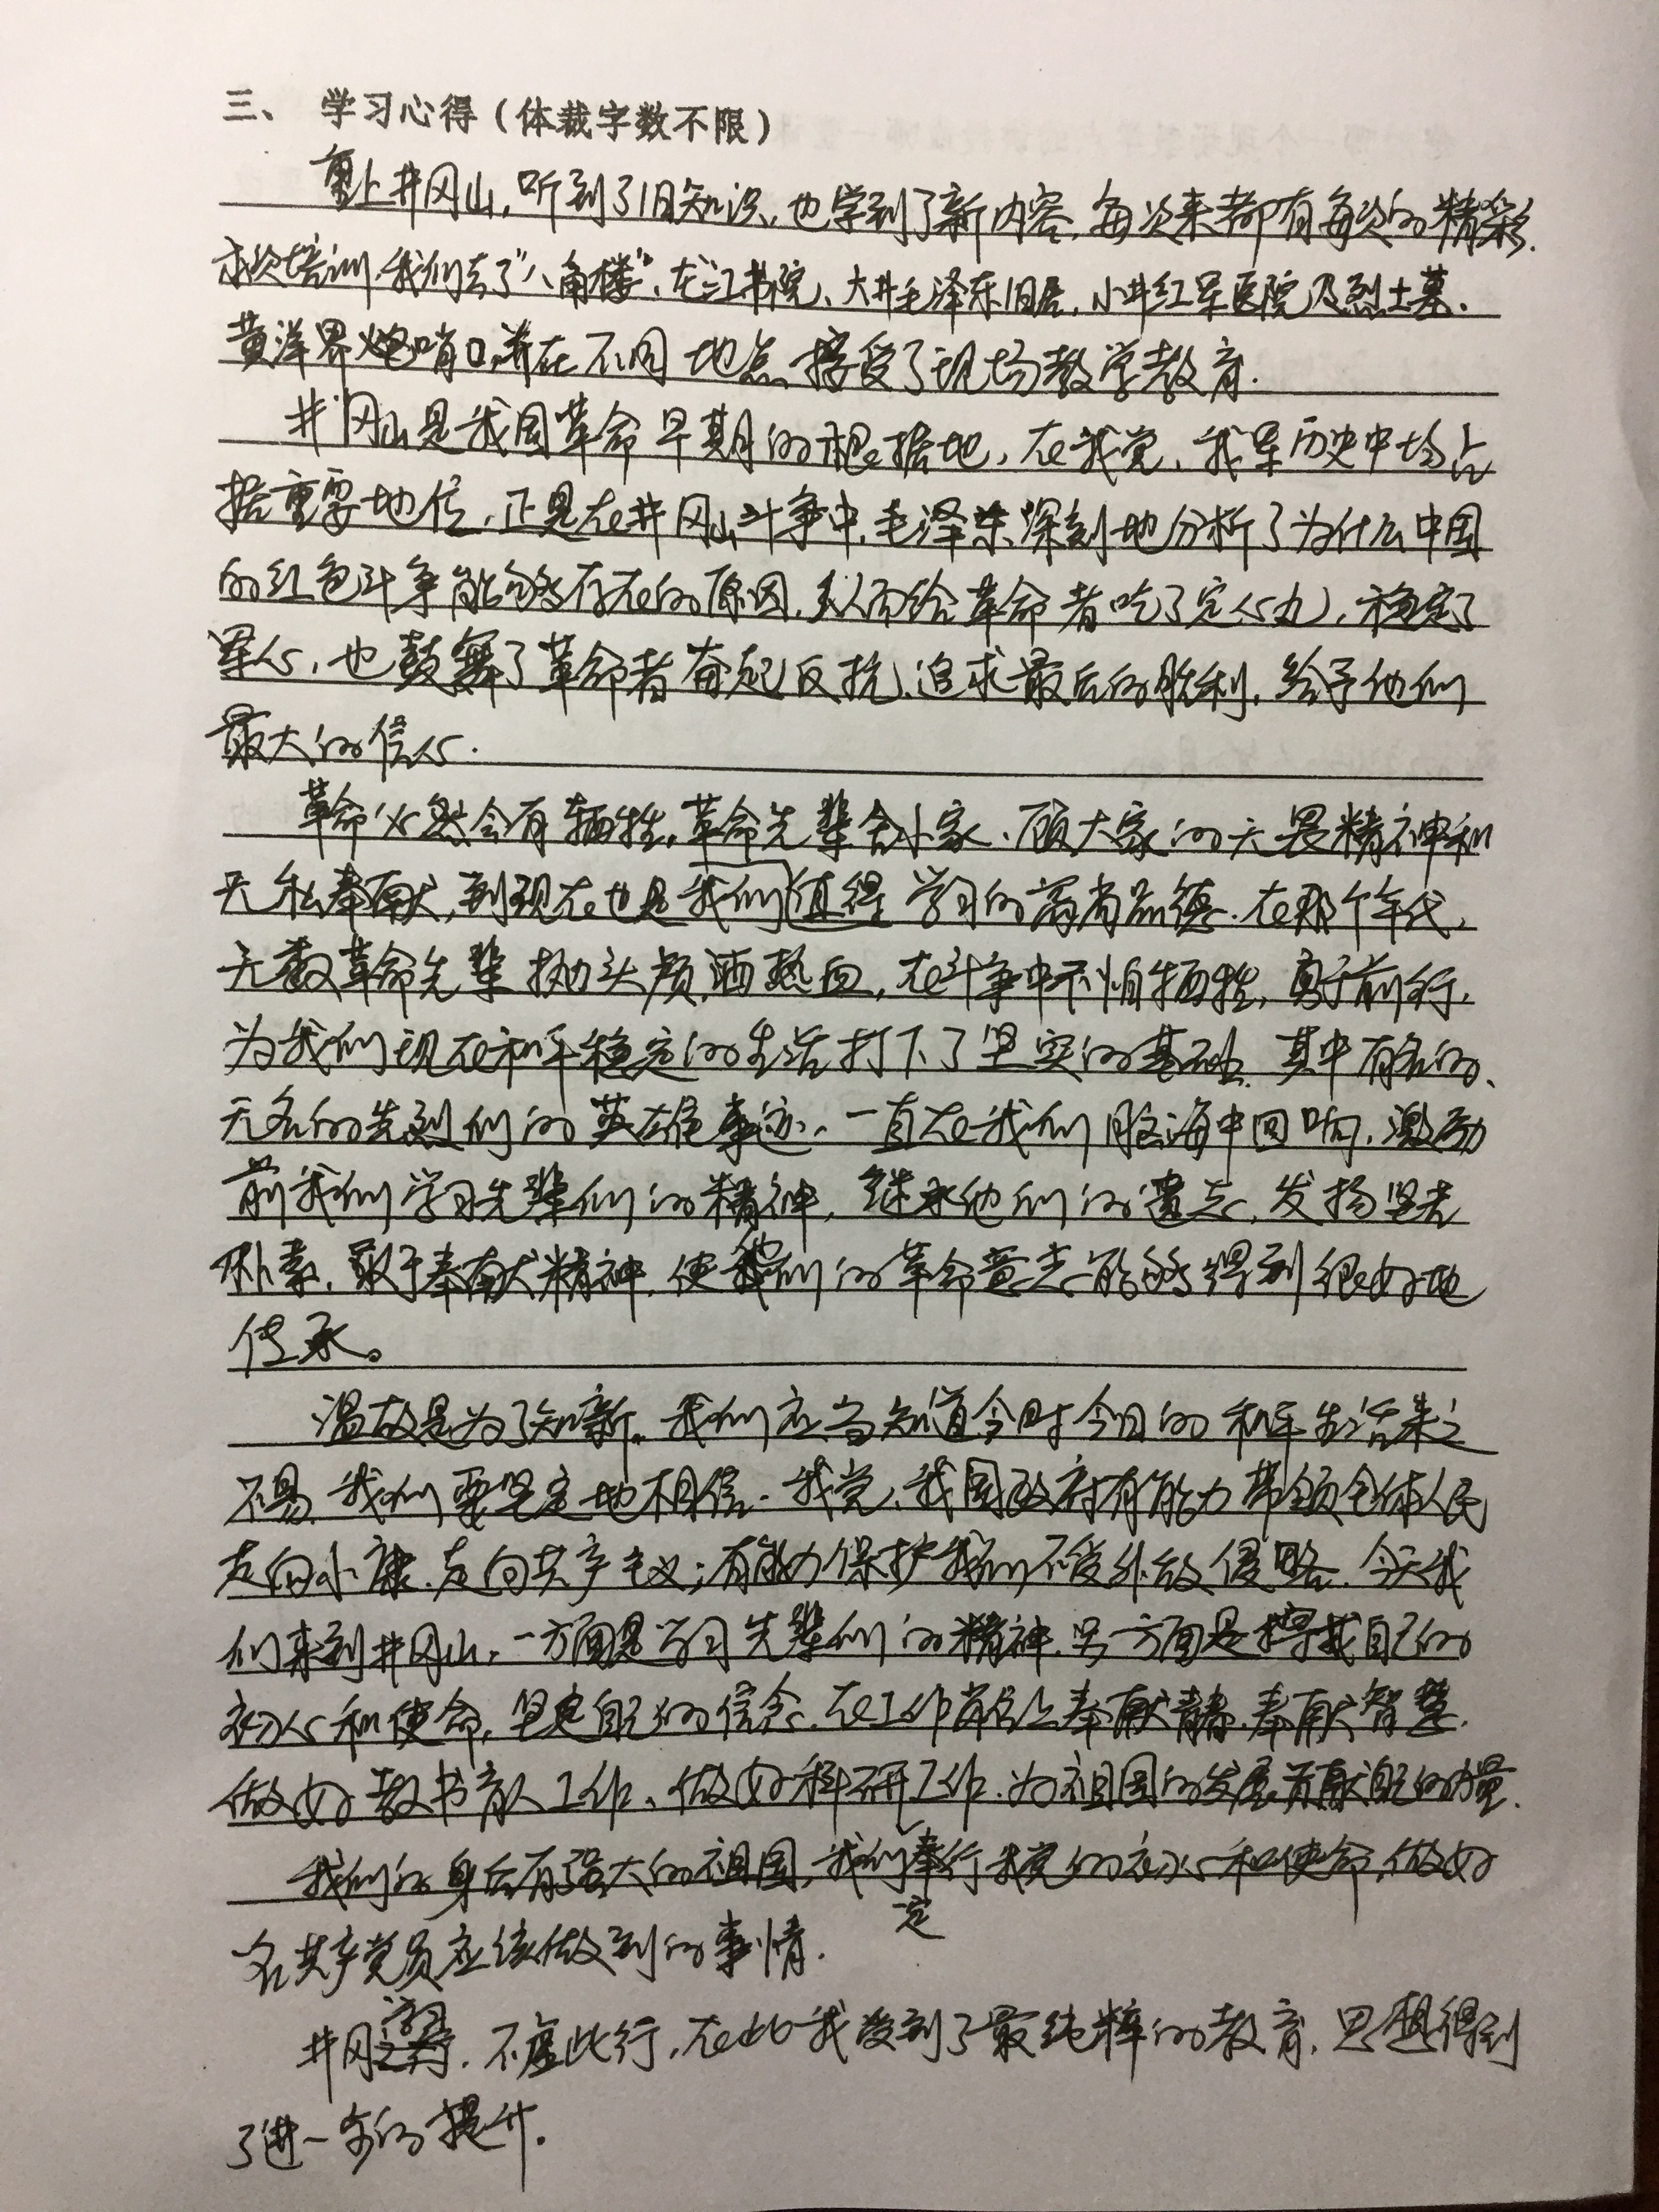 三、 学习心得（体裁字数不限）
重上井冈山，听到了旧知识，也学到了新内容，每次来都有每次的精彩.
本次培训，我们去了“八角楼”、龙江书院、大井毛泽东旧居，小井红军医院及烈士墓、
黄洋界炮哨口，并在不同地点接受了现场教学教育.
井冈山是我国革命早期的根据地，在我党、我军历史中均占
据重要地位，正是在井冈山斗争中，毛泽东深刻地分析了为什么中国
的红色斗争能够存在的原因，从而给革命者吃了定心丸，稳定了
军心，也鼓舞了革命者奋起反抗，追求最后的胜利，给予他们
最大的信心.
革命必然会有牺牲，革命先辈舍小家、顾大家的无畏精神和
无私奉献，到现在也是我们值得学习的高尚品德. 在那个年代，
无数革命先辈抛头颅，洒热血，在斗争中不怕牺牲，勇于前行，
为我们现在和平稳定的生活打下了坚实的基础. 其中有名的、
无名的先烈们的英雄事迹，一直在我们脑海中回响，激励
前我们学习先辈们的精神，继承他们的遗志，发扬坚苦
朴素，敢于奉献精神，使他们的革命意志能够得到很好地
传承。
温故是为了知新。我们应当知道今时今日的和平生活来之
不易，我们要坚定地相信，我党、我国政府有能力带领全体人民
走向小康，走向共产主义；有能力保护我们不受外敌侵略. 今天我
们来到井冈山，一方面是学习先辈们的精神，另一方面是寻找自己的
初心和使命，坚定自己的信念，在工作岗位上奉献青春，奉献智慧.
做好教书育人工作、做好科研工作，为祖国的发展贡献自己的力量.
我们的身后有强大的祖国，我们奉行我党的初心和使命，做好
一定
名共产党员应该做到的事情.
井冈之行，不虚此行，在此我受到了最纯粹的教育，思想得到
了进一步的提升.